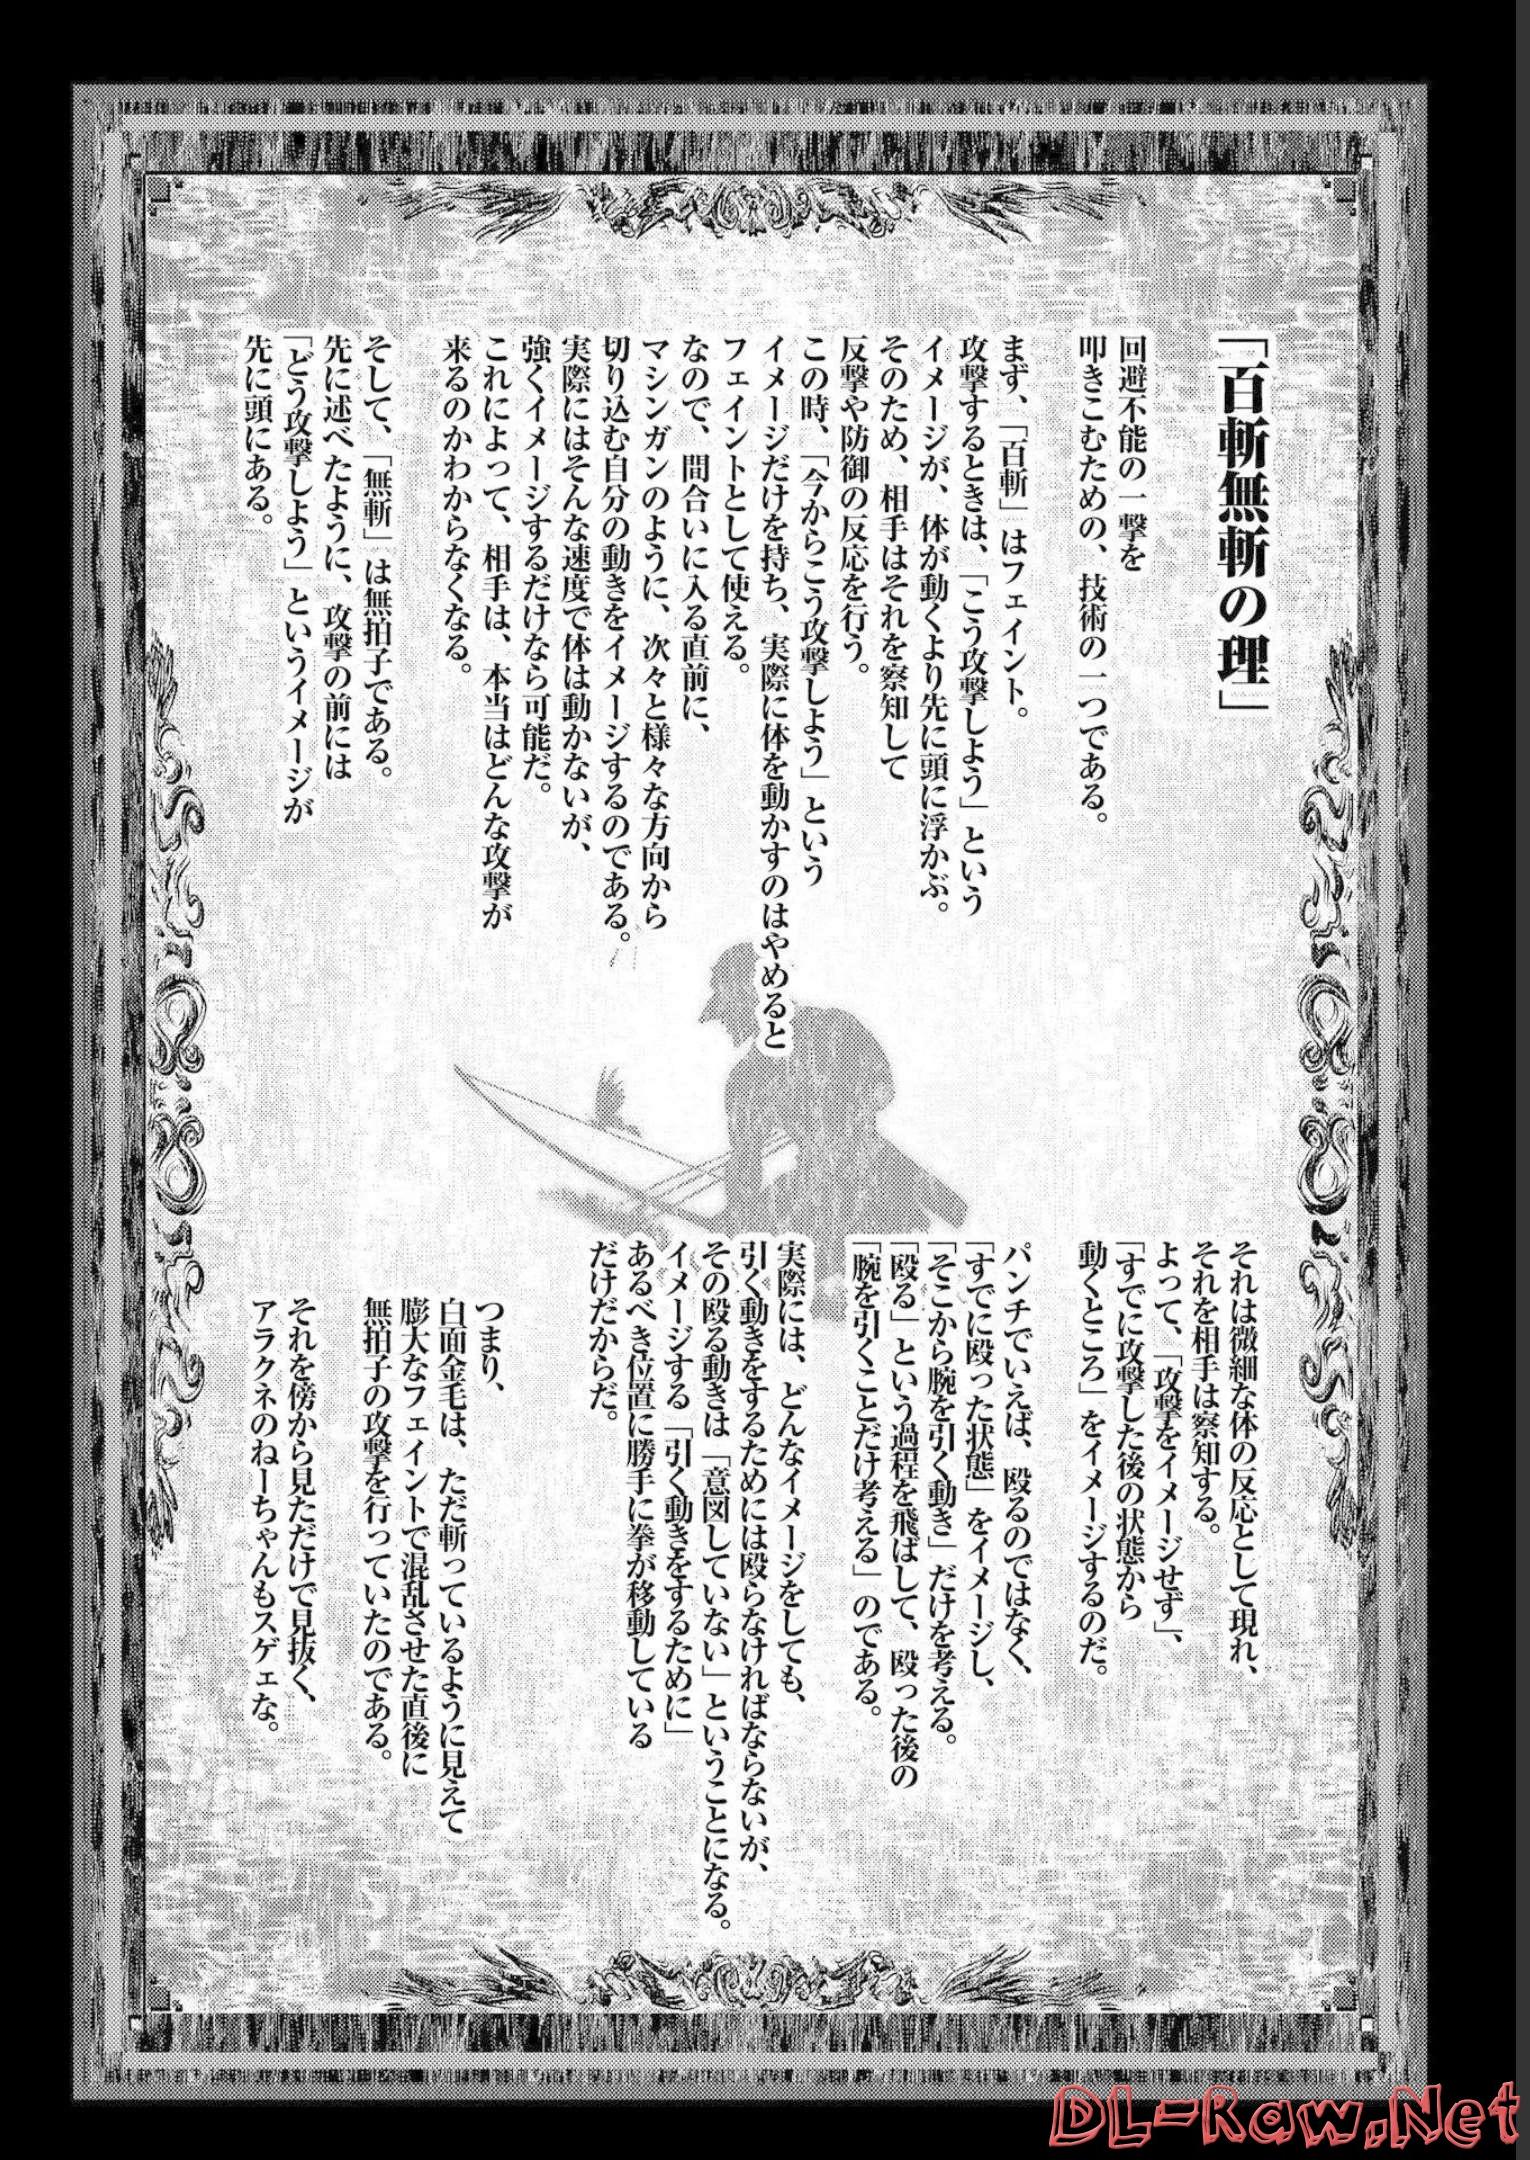 「百斬無斬の理」
回避不能の一撃を
叩きこむための、技術の一つである。
まず、「百斬」はフェイント。
攻撃するときは、「こう攻撃しよう」という
イメージが、体が動くより先に頭に浮かぶ。
そのため、相手はそれを察知して
反撃や防御の反応を行う。
この時、「今からこう攻撃しよう」という
イメージだけを持ち、実際に体を動かすのはやめると
フェイントとして使える。
なので、間合いに入る直前に、
マシンガンのように、次々と様々な方向から
切り込む自分の動きをイメージするのである。
実際にはそんな速度で体は動かないが、
強くイメージするだけなら可能だ。
これによって、相手は、本当はどんな攻撃が
来るのかわからなくなる。
そして、「無斬」は無拍子である。
先に述べたように、攻撃の前には
「どう攻撃しよう」というイメージが
先に頭にある。
それは微細な体の反応として現れ、
それを相手は察知する。
よって、「攻撃をイメージせず」、
「すでに攻撃した後の状態から
動くところ」をイメージするのだ。
パンチでいえば、殴るのではなく、
「すでに殴った状態」をイメージし、
「そこから腕を引く動き」だけを考える。
「殴る」という過程を飛ばして、殴った後の
「腕を引くことだけ考える」のである。
実際には、どんなイメージをしても、
引く動きをするためには殴らなければならないが、
その殴る動きは「意図していない」ということになる。
イメージする「引く動きをするために」
あるべき位置に勝手に拳が移動している
だけだからだ。
つまり、
白面金毛は、ただ斬っているように見えて
膨大なフェイントで混乱させた直後に
無拍子の攻撃を行っていたのである。
それを傍から見ただけで見抜く、
アラクネのねーちゃんもスゲェな。
DL-Raw.Net